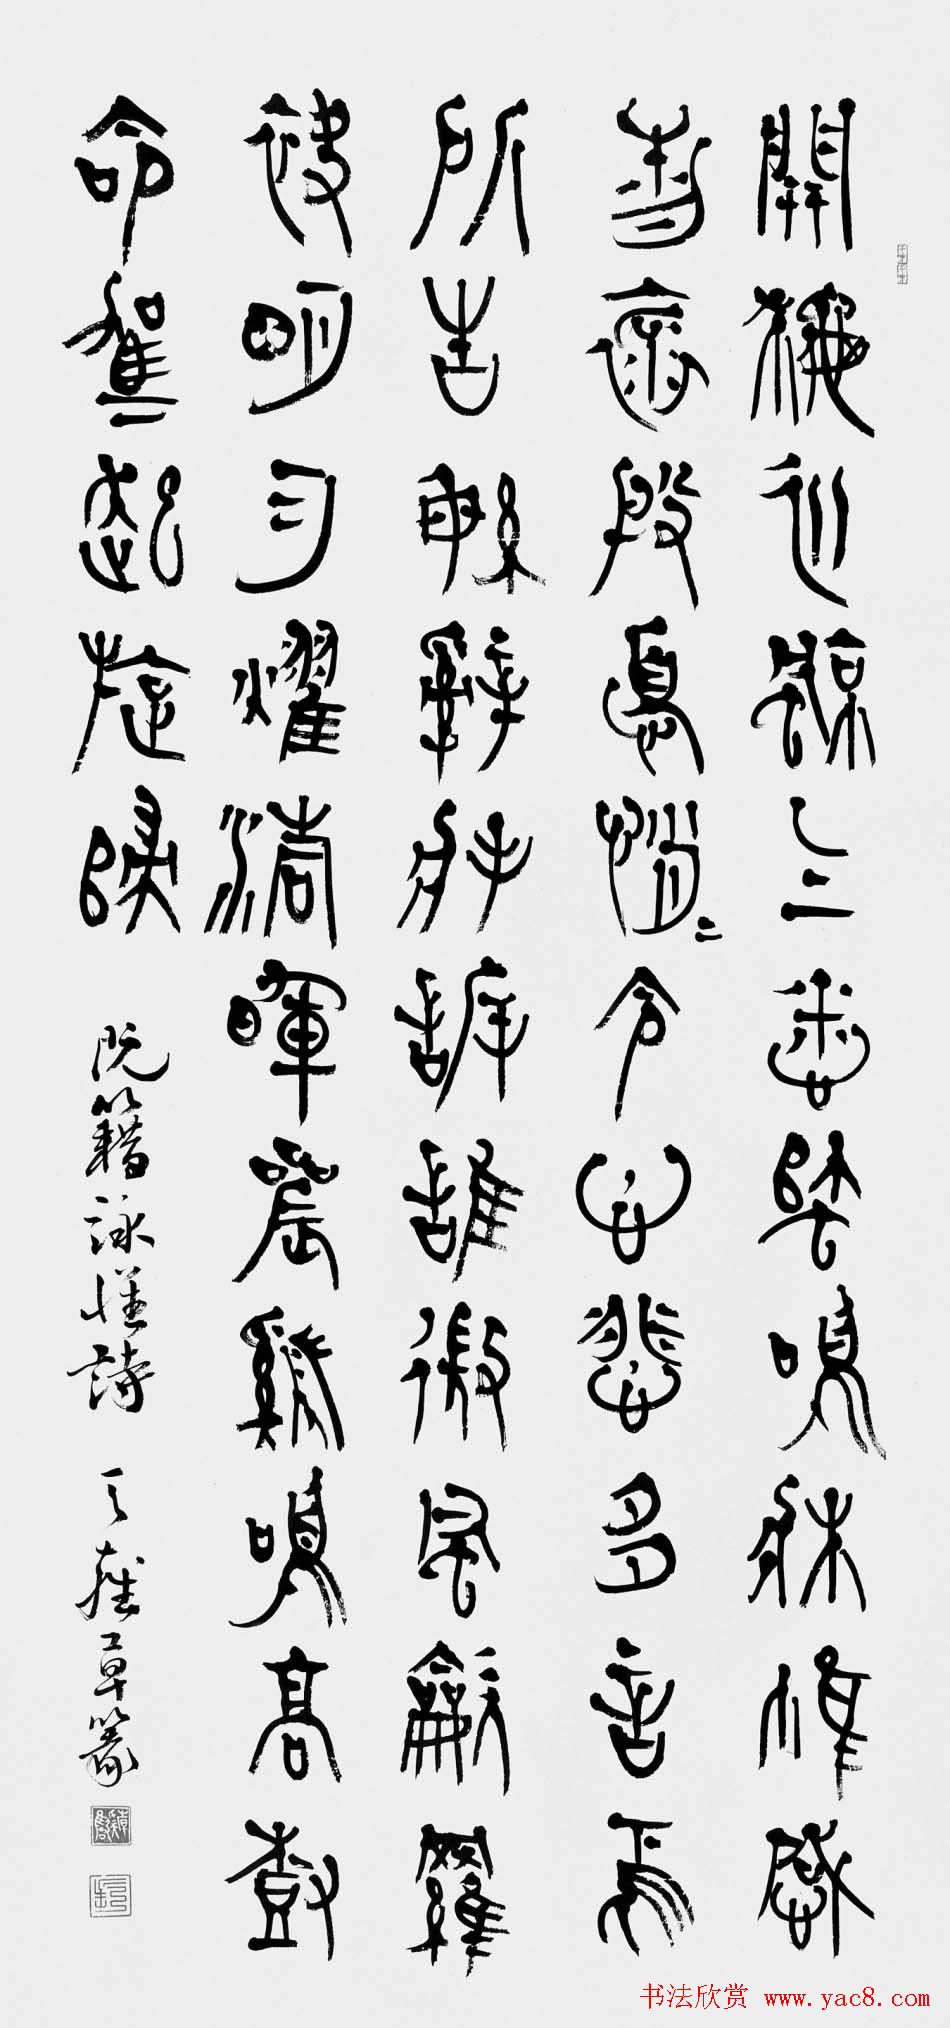 開秋兆涼氣蟋蟀鳴牀帷感
物懷殷憂悄〻令心悲多言焉
所告繁辭將訴誰微風吹羅
袂明月耀清暉晨雞鳴高樹
命駕起旋歸 阮籍詠懷詩 草篆
书法欣赏 www.yac8.com